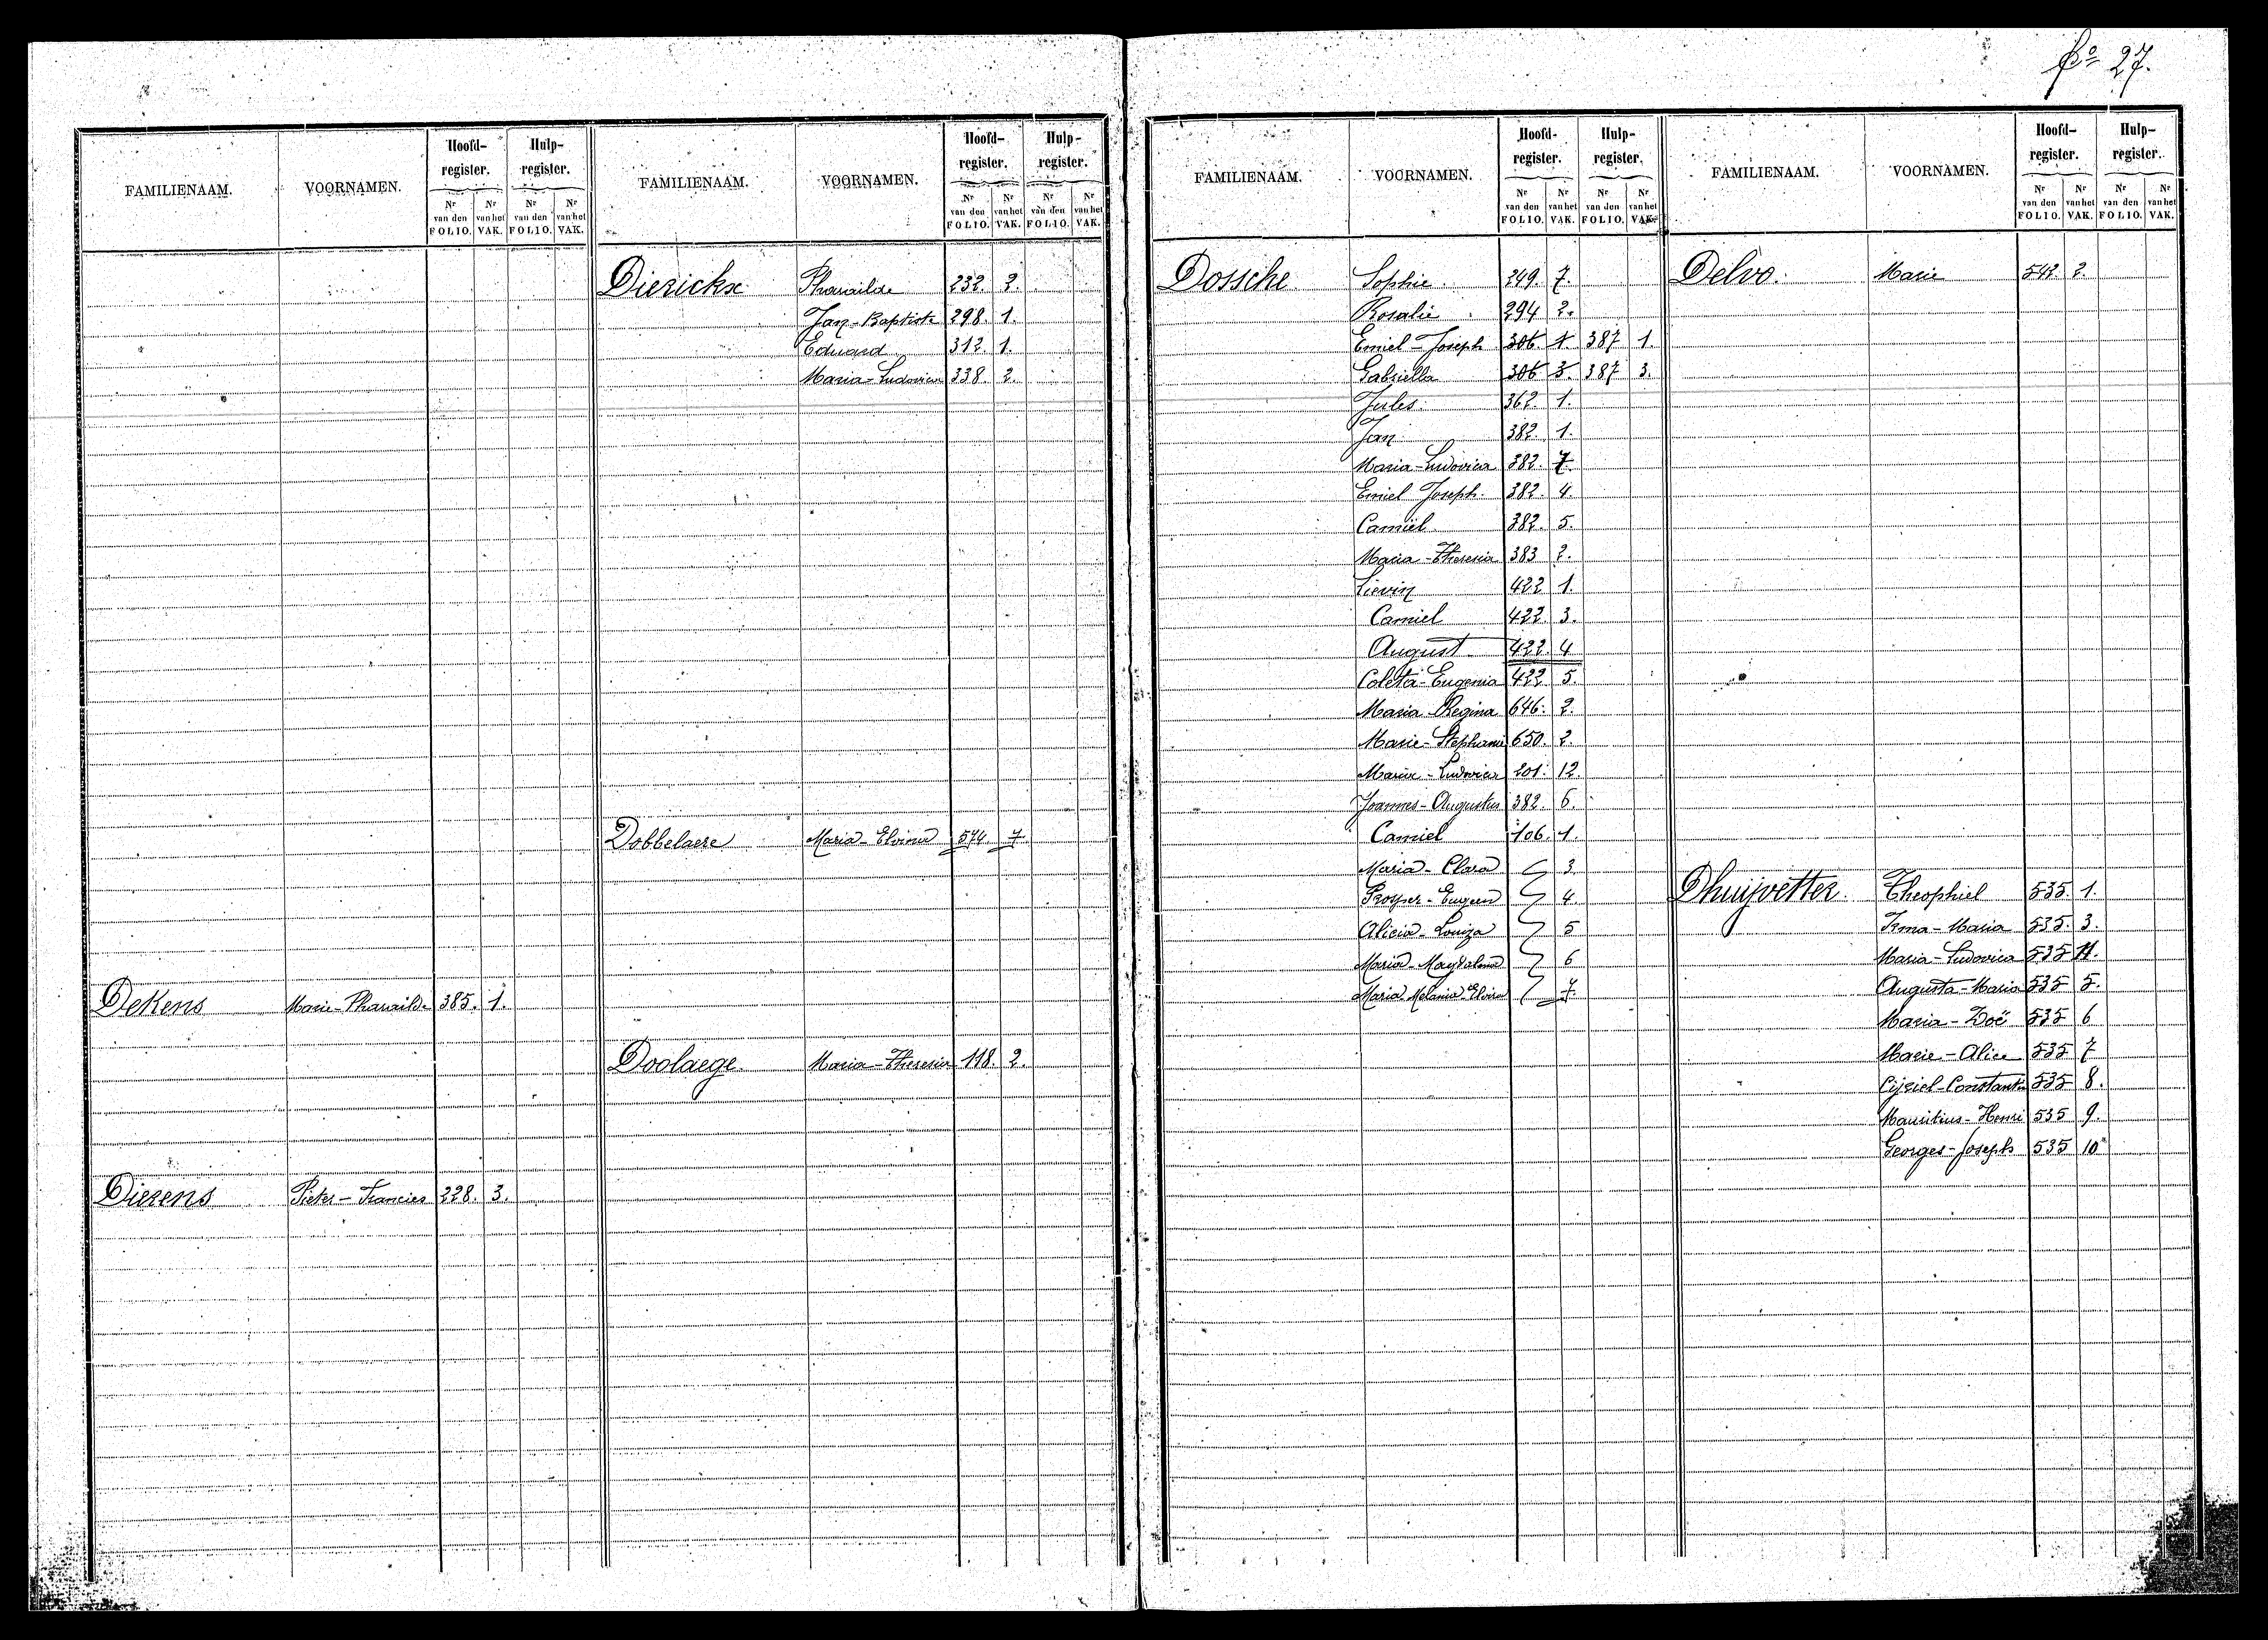 fo 27.
FAMILIENAAM. VOORNAMEN. Hoofd-register. Hulp-register.
Nr van den FOLIO. Nr van het VAK. Nr van den FOLIO. Nr van het VAK.
DeKens Marie-Pharailde 385. 1.
Dierens Pieter-Francies 228. 3.
FAMILIENAAM. VOORNAMEN. Hoofd-register. Hulp-register.
Nr van den FOLIO. Nr van het VAK. Nr van den FOLIO. Nr van het VAK.
Dierickx Pharailde 232. 2.
Jan-Baptiste 298. 1.
Eduard 312. 1.
Maria-Ludovica 338. 2.
Dobbelaere Maria-Elvina 574. 7
Doolaege Maria-Theresia 118. 2.
FAMILIENAAM. VOORNAMEN. Hoofd-register. Hulp-register.
Nr van den FOLIO. Nr van het VAK. Nr van den FOLIO. Nr van het VAK.
Dossche Sophie 249. 7.
Rosalie 294 2.
Emiel-Joseph 306 1 387 1
Gabriella 306 3. 387 3.
Jules 362. 1.
Jan 382. 1.
Maria-Ludovica 382. 7.
Emiel Joseph 382. 4.
Camiel 382. 5.
Maria-Theresia 383 2.
Lievin 422 1.
Camiel 422. 3.
August 422. 4
Coleta-Eugenia 422 5.
Maria Regina 646. 2.
Marie-Stephanie 650. 2.
Maria-Ludovica 201. 12.
Joannes-Augustus 382. 6.
Camiel 106. 1.
Maria-Clara 3.
Prosper-Eugeen 4.
Alicia-Louiza 5
Maria-Magdalena 6
Maria Melania Elvira 7.
FAMILIENAAM. VOORNAMEN. Hoofd-register. Hulp-register.
Nr van den FOLIO. Nr van het VAK. Nr van den FOLIO. Nr van het VAK.
Delvo. Marie 542 2.
Dhuijvetter. Theophiel 535. 1.
Irma-Maria 535. 3.
Maria-Ludovica 535 11.
Augusta-Maria 535 5.
Maria-Zoë 535 6
Marie-Alice 535 7
Cijriel-Constantin 535 8.
Mauritius-Henri 535 9.
Georges-Joseph 535 10